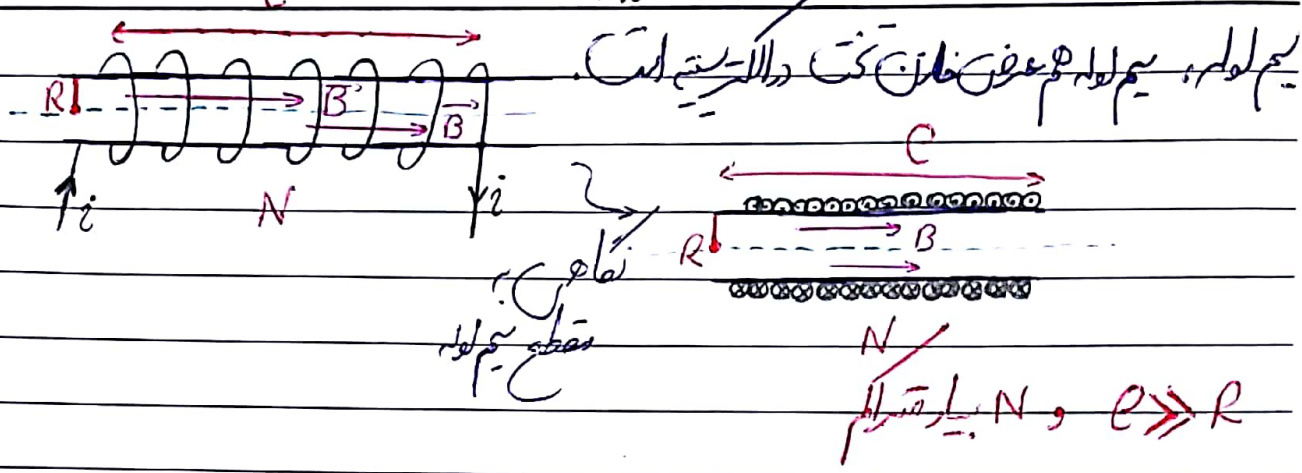 سیم‌لوله: سیم‌لوله هم عرض خازن تخت در الکتریسیته است.
R B B
i N i
ℓ
R B
نگاهی به
مقطع سیم‌لوله
N
ℓ >> R و N بسیار متراکم